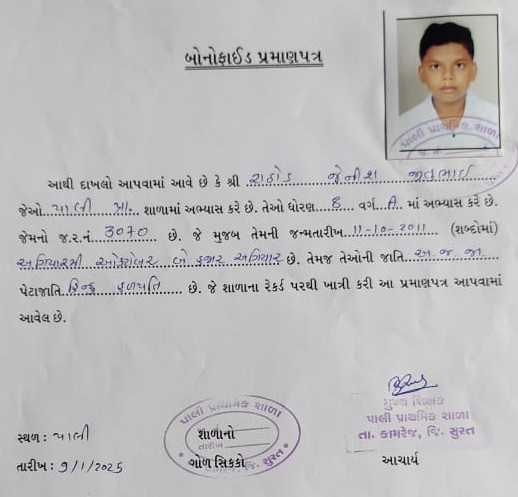 બોનોફાઈડ પ્રમાણપત્ર
પાલી પ્રાથમિક શાળા
આથી દાખલો આપવામાં આવે છે કે શ્રી રાઠોડ જેનીશ જીતુભાઈ
જેઓ પાલી પ્રા. શાળામાં અભ્યાસ કરે છે. તેઓ ધોરણ 8 વર્ગ A માં અભ્યાસ કરે છે.
જેમનો જ.ર.નં 3070 છે. જે મુજબ તેમની જન્મતારીખ 11-10-2011 (શબ્દોમાં)
અગિયારમી ઓક્ટોબર બે હજાર અગિયાર છે. તેમજ તેઓની જાતિ અ.જ.જા
પેટાજાતિ હિન્દુ હળપતિ છે. જે શાળાના રેકર્ડ પરથી ખાત્રી કરી આ પ્રમાણપત્ર આપવામાં
આવેલ છે.
સ્થળ : પાલી
તારીખ : 9/1/2025
પાલી પ્રાથમિક શાળા
શાળાનો
તારીખ
ગોળ સિક્કો
જિ. સુરત
મુખ્ય શિક્ષક
પાલી પ્રાથમિક શાળા
તા. કામરેજ, જિ. સુરત
આચાર્ય